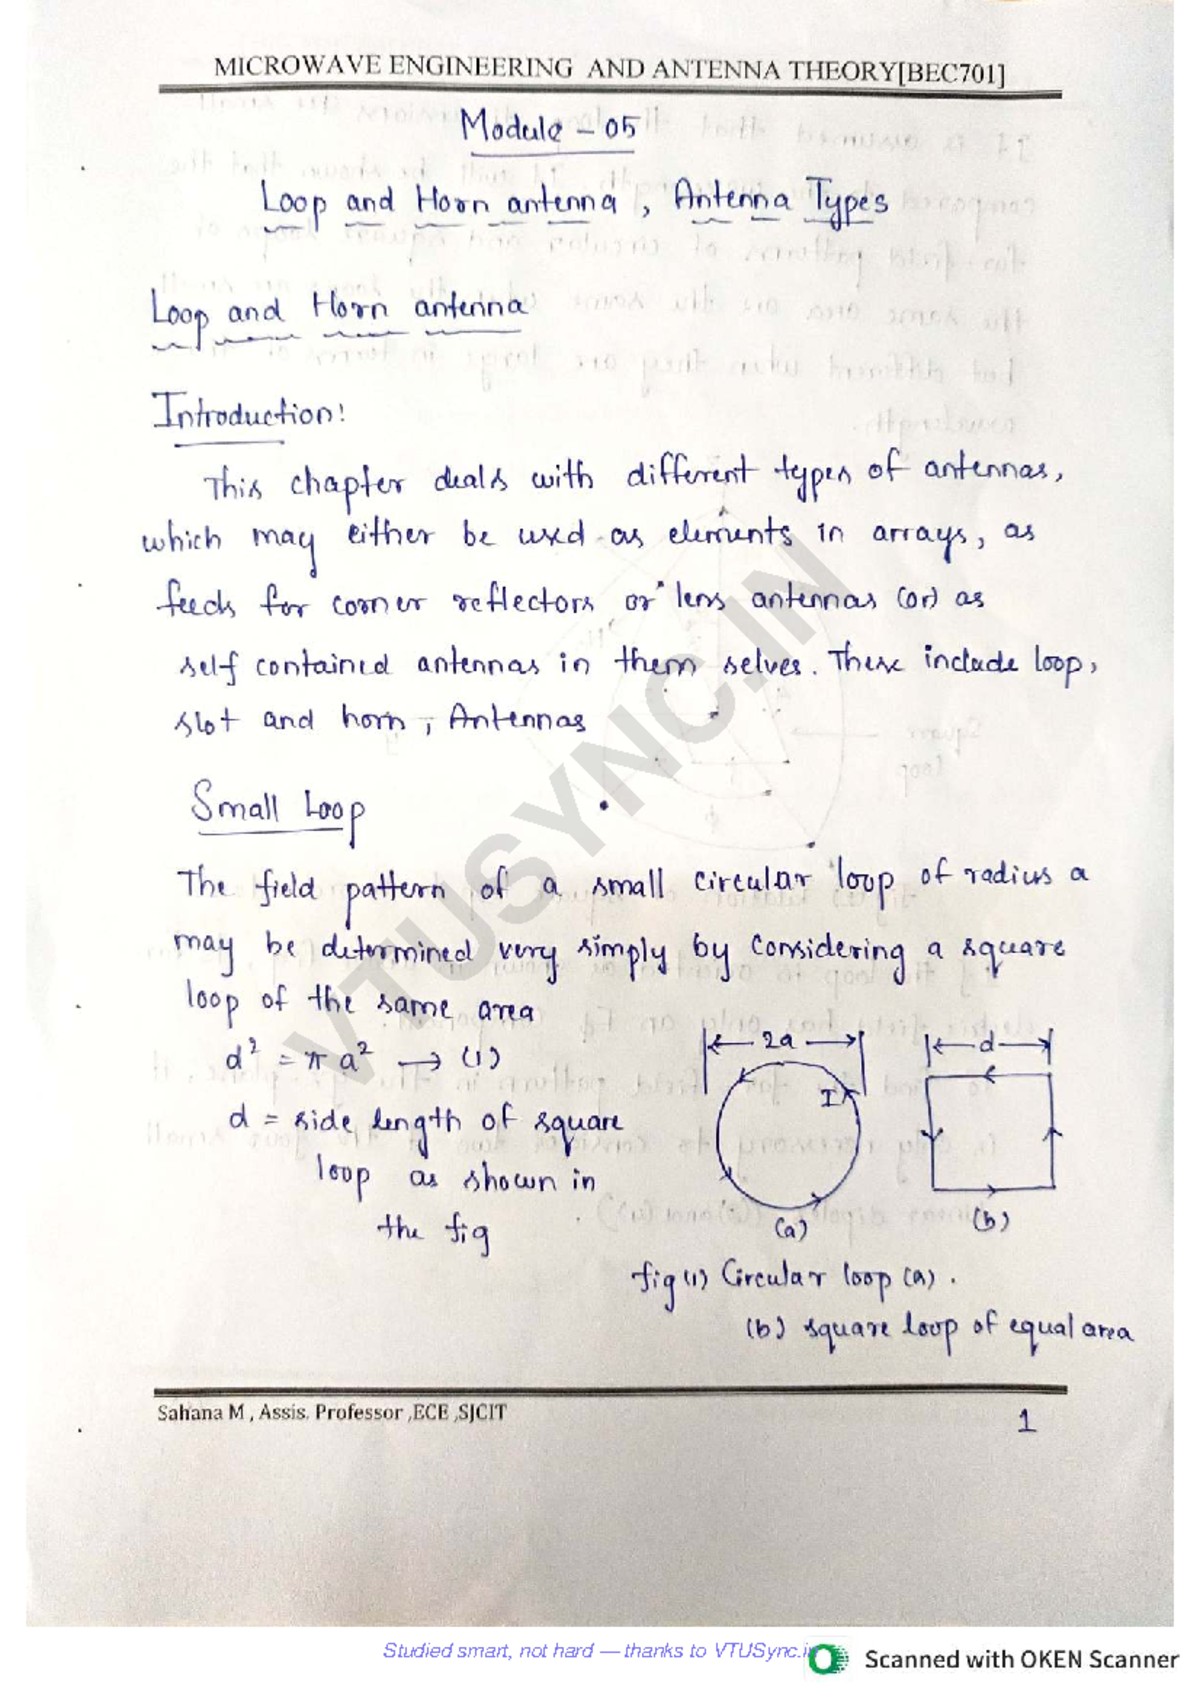 MICROWAVE ENGINEERING AND ANTENNA THEORY[BEC701]
Module - 05
Loop and Horn antenna, Antenna Types
Loop and Horn antenna
Introduction:
This chapter deals with different types of antennas,
which may either be used as elements in arrays, as
feeds for corner reflectors or lens antennas (or) as
self contained antennas in them selves. These include loop,
slot and horn, Antennas
Small Loop
The field pattern of a small circular loop of radius a
may be determined very simply by considering a square
loop of the same area
d² = π a² → (1)
d = side length of square
loop as shown in
the fig
2a
I
(a)
d
(b)
fig (1) Circular loop (a).
(b) square loop of equal area
Sahana M , Assis. Professor ,ECE ,SJCIT
1
VTUSYNC.IN
Studied smart, not hard — thanks to VTUSync.in
Scanned with OKEN Scanner